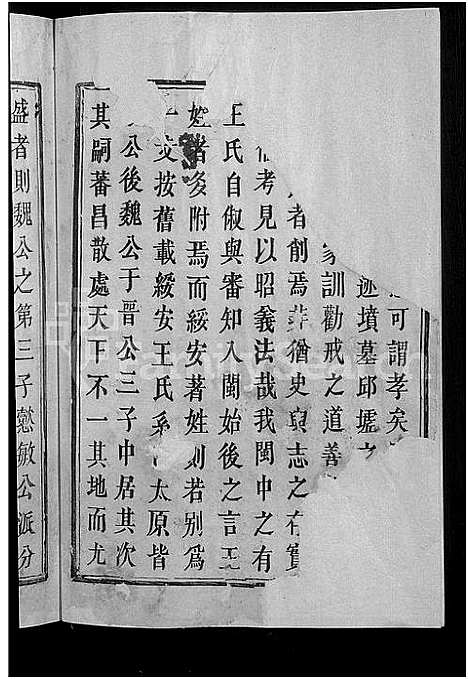 可謂孝矣
迹墳墓邱墟之
家訓勸戒之道善
者創焉非猶史與志之有實
考見以昭義法哉我閩中之有
王氏自俶與審知入閩始後之言王
姓者多附焉而綏安著姓則若別爲
一支按舊載綏安王氏系 太原皆
公後魏公于晋公三子中居其次
其嗣蕃昌散處天下不一其地而尤
盛者則魏公之第三子懋敏公派分
FamilySearch